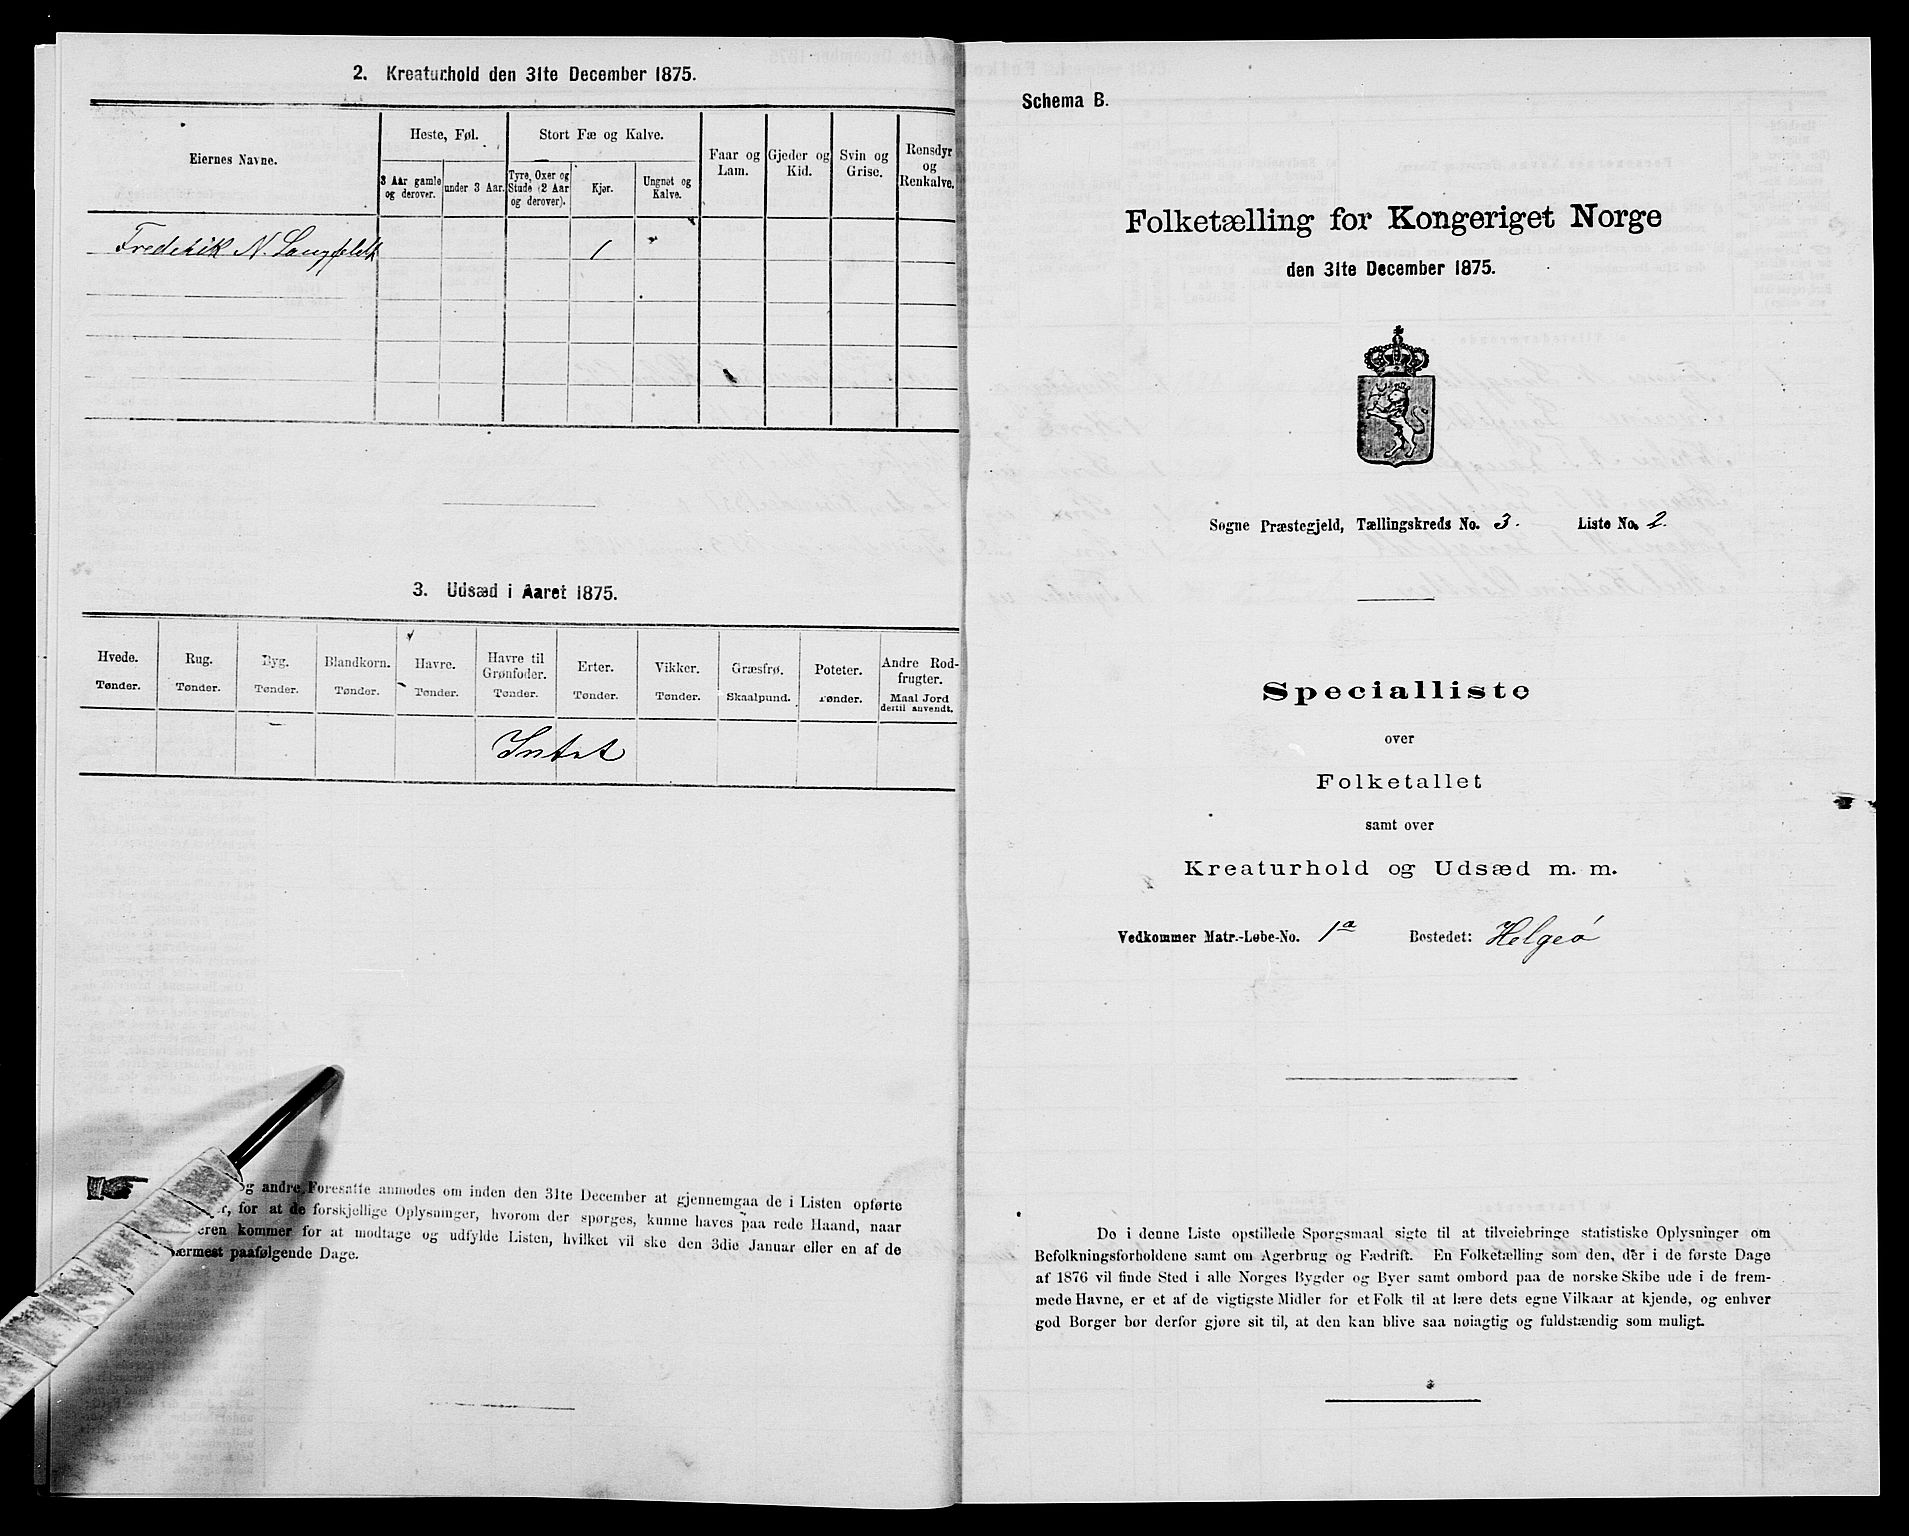 2. Kreaturhold den 31te December 1875.
Eiernes Navne.
Heste, Føl.
3 Aar gamle og derover.
under 3 Aar.
Stort Fæ og Kalve.
Tyre, Oxer og Stude (2 Aar og derover).
Kjør.
Ungnøt og Kalve.
Faar og Lam.
Gjeder og Kid.
Svin og Grise.
Rensdyr og Renkalve.
Frederik N Langfeldt 1
3. Udsæd i Aaret 1875.
Hvede. Tønder.
Rug. Tønder.
Byg. Tønder.
Blandkorn. Tønder.
Havre. Tønder.
Havre til Grønfoder. Tønder.
Erter. Tønder.
Vikker. Tønder.
Græsfrø. Skaalpund.
Poteter. Tønder.
Andre Rodfrugter. Maal Jord dertil anvendt.
Intet
og andre Foresatte anmodes om inden den 31te December at gjennemgaa de i Listen opførte
for at de forskjellige Oplysninger, hvorom der spørges, kunne haves paa rede Haand, naar
kommer for at modtage og udfylde Listen, hvilket vil ske den 3die Januar eller en af de
paafølgende Dage.
Schema B.
Folketælling for Kongeriget Norge
den 31te December 1875.
Søgne Præstegjeld, Tællingskreds No. 3. Liste No. 2.
Specialliste
over
Folketallet
samt over
Kreaturhold og Udsæd m. m.
Vedkommer Matr.-Løbe-No. 1a Bostedet: Helgeø
De i denne Liste opstillede Spørgsmaal sigte til at tilveiebringe statistiske Oplysninger om
Befolkningsforholdene samt om Agerbrug og Fædrift. En Folketælling som den, der i de første Dage
af 1876 vil finde Sted i alle Norges Bygder og Byer samt ombord paa de norske Skibe ude i de frem-
mede Havne, er et af de vigtigste Midler for et Folk til at lære dets egne Vilkaar at kjende, og enhver
god Borger bør derfor gjøre sit til, at den kan blive saa nøiagtig og fuldstændig som muligt.